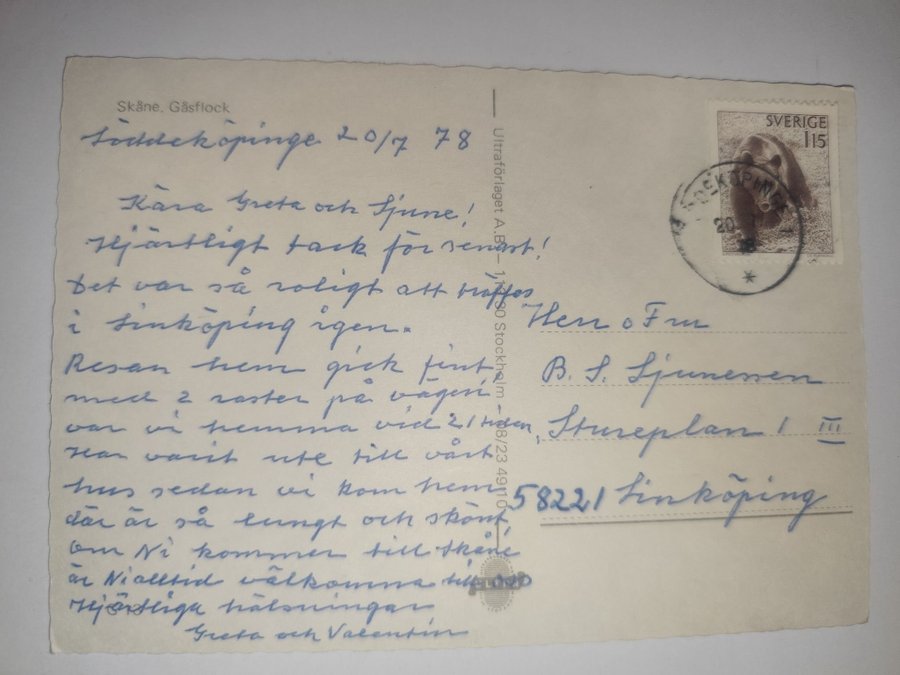 Skåne, Gåsflock
Löddeköpinge 20/7 78
Kära Greta och Sjune!
Hjärtligt tack för senast!
Det var så roligt att träffas
i Linköping igen.
Resan hem gick fint
med 2 raster på vägen
var vi hemma vid 21 tiden,
Har varit ute till vårt
hus sedan vi kom hem
där är så lungt och skönt
Om Ni kommer till Skåne
är Ni alltid välkomna till oss
Hjärtliga hälsningar
Greta och Valentin
Ultraförlaget A.B. Stockholm 08/23 49 10
SVERIGE
1 15
LÖDDEKÖPINGE 1
20
78
Herr o Fru
B. S. Sjunessen
Stureplan 1 III
58221 Linköping